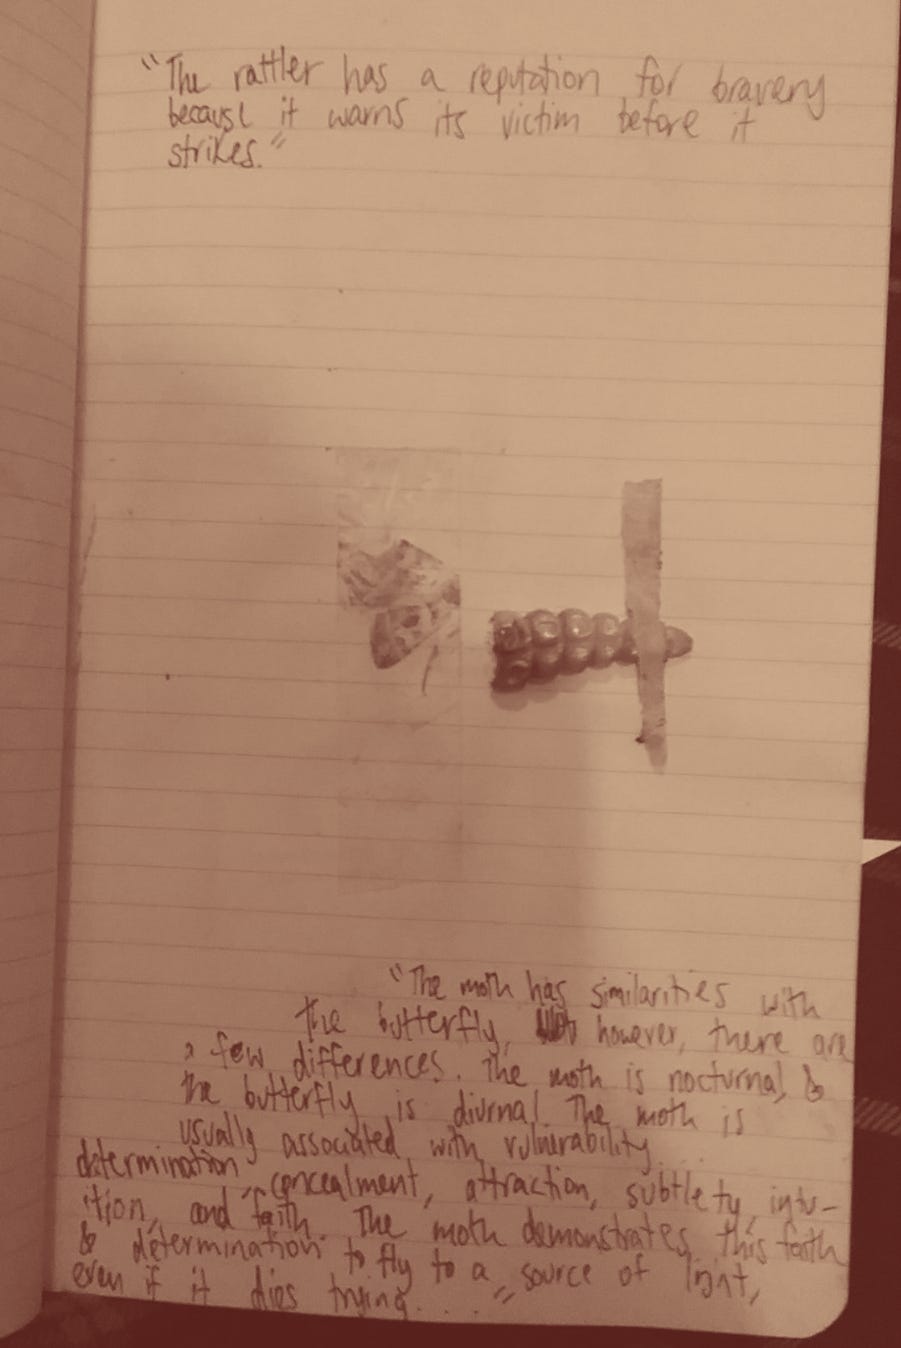 "The rattler has a reputation for bravery
because it warns its victim before it
strikes."
"The moth has similarities with
the butterfly, however, there are
a few differences. The moth is nocturnal, &
the butterfly is diurnal. The moth is
usually associated with vulnerability
determination concealment, attraction, subtlety, intu-
ition, and faith. The moth demonstrates this faith
& determination to fly to a source of light,
even if it dies trying. . . ."